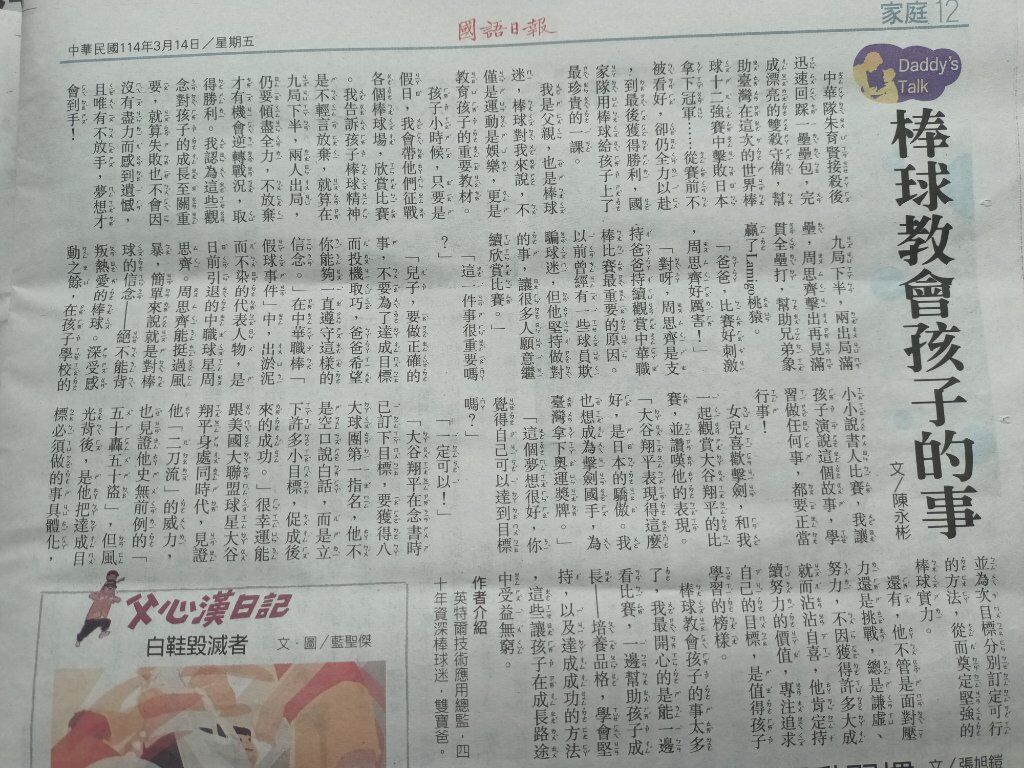 中華民國114年3月14日／星期五
國語日報
家庭 12
Daddy's
Talk
棒球教會孩子的事
文／陳永彬
中華隊朱育賢接殺後
迅速回踩一壘壘包，完
成漂亮的雙殺守備，幫
助臺灣在這次的世界棒
球十二強賽中擊敗日本
拿下冠軍……從賽前不
被看好，卻仍全力以赴
，到最後獲得勝利，國
家隊用棒球給孩子上了
最珍貴的一課。
我是父親，也是棒球
迷，棒球對我來說，不
僅是運動是娛樂，更是
教育孩子的重要教材。
孩子小時候，只要是
假日，我會帶他們征戰
各個棒球場，欣賞比賽
。我告訴孩子棒球精神
是不輕言放棄，就算在
九局下半，兩人出局，
仍要傾盡全力，不放棄
才有機會逆轉戰況，取
得勝利。我認為這些觀
念對孩子的成長至關重
要，就算失敗也不會因
沒有盡力而感到遺憾，
且唯有不放手，夢想才
會到手！
九局下半，兩出局滿
壘，周思齊擊出再見滿
貫全壘打，幫助兄弟象
贏了Lamigo桃猿。
「爸爸，比賽好刺激
，周思齊好厲害！」
「對呀，周思齊是支
持爸爸持續觀賞中華職
棒比賽最重要的原因。
以前曾經有一些球員欺
騙球迷，但他堅持做對
的事，讓很多人願意繼
續欣賞比賽。」
「這一件事很重要嗎
？」
「兒子，要做正確的
事，不要為了達成目標
而投機取巧，爸爸希望
你能夠一直遵守這樣的
信念。」在中華職棒「
假球事件」中，出淤泥
而不染的代表人物，是
日前引退的中職球星周
思齊。周思齊能挺過風
暴，簡單來說就是對棒
球的信念——絕不能背
叛熱愛的棒球。深受感
動之餘，在孩子學校的
小小說書人比賽，我讓
孩子演說這個故事，學
習做任何事，都要正當
行事！
女兒喜歡擊劍，和我
一起觀賞大谷翔平的比
賽，並讚嘆他的表現。
「大谷翔平表現得這麼
好，是日本的驕傲。我
也想成為擊劍國手，為
臺灣拿下奧運獎牌。」
「這個夢想很好，你
覺得自己可以達到目標
嗎？」
「一定可以！」
「大谷翔平在念書時
已訂下目標，要獲得八
大球團第一指名，他不
是空口說白話，而是立
下許多小目標，促成後
來的成功。」很幸運能
跟美國大聯盟球星大谷
翔平身處同時代，見證
他「二刀流」的威力，
也見證他史無前例的「
五十轟五十盜」，但風
光背後，是他把達成目
標必須做的事具體化，
並為次目標分別訂定可行
的方法，從而奠定堅強的
棒球實力。
還有，他不管是面對壓
力還是挑戰，總是謙虛、
努力，不因獲得許多大成
就而沾沾自喜，他肯定持
續努力的價值，專注追求
自己的目標，是值得孩子
學習的榜樣。
棒球教會孩子的事太多
了，我最開心的是能一邊
看比賽，一邊幫助孩子成
長——培養品格，學會堅
持，以及達成成功的方法
，這些讓孩子在成長路途
中受益無窮。
作者介紹
英特爾技術應用總監，四
十年資深棒球迷，雙寶爸。
父心漢日記
白鞋毀滅者
文・圖／藍聖傑
文／張旭鎧